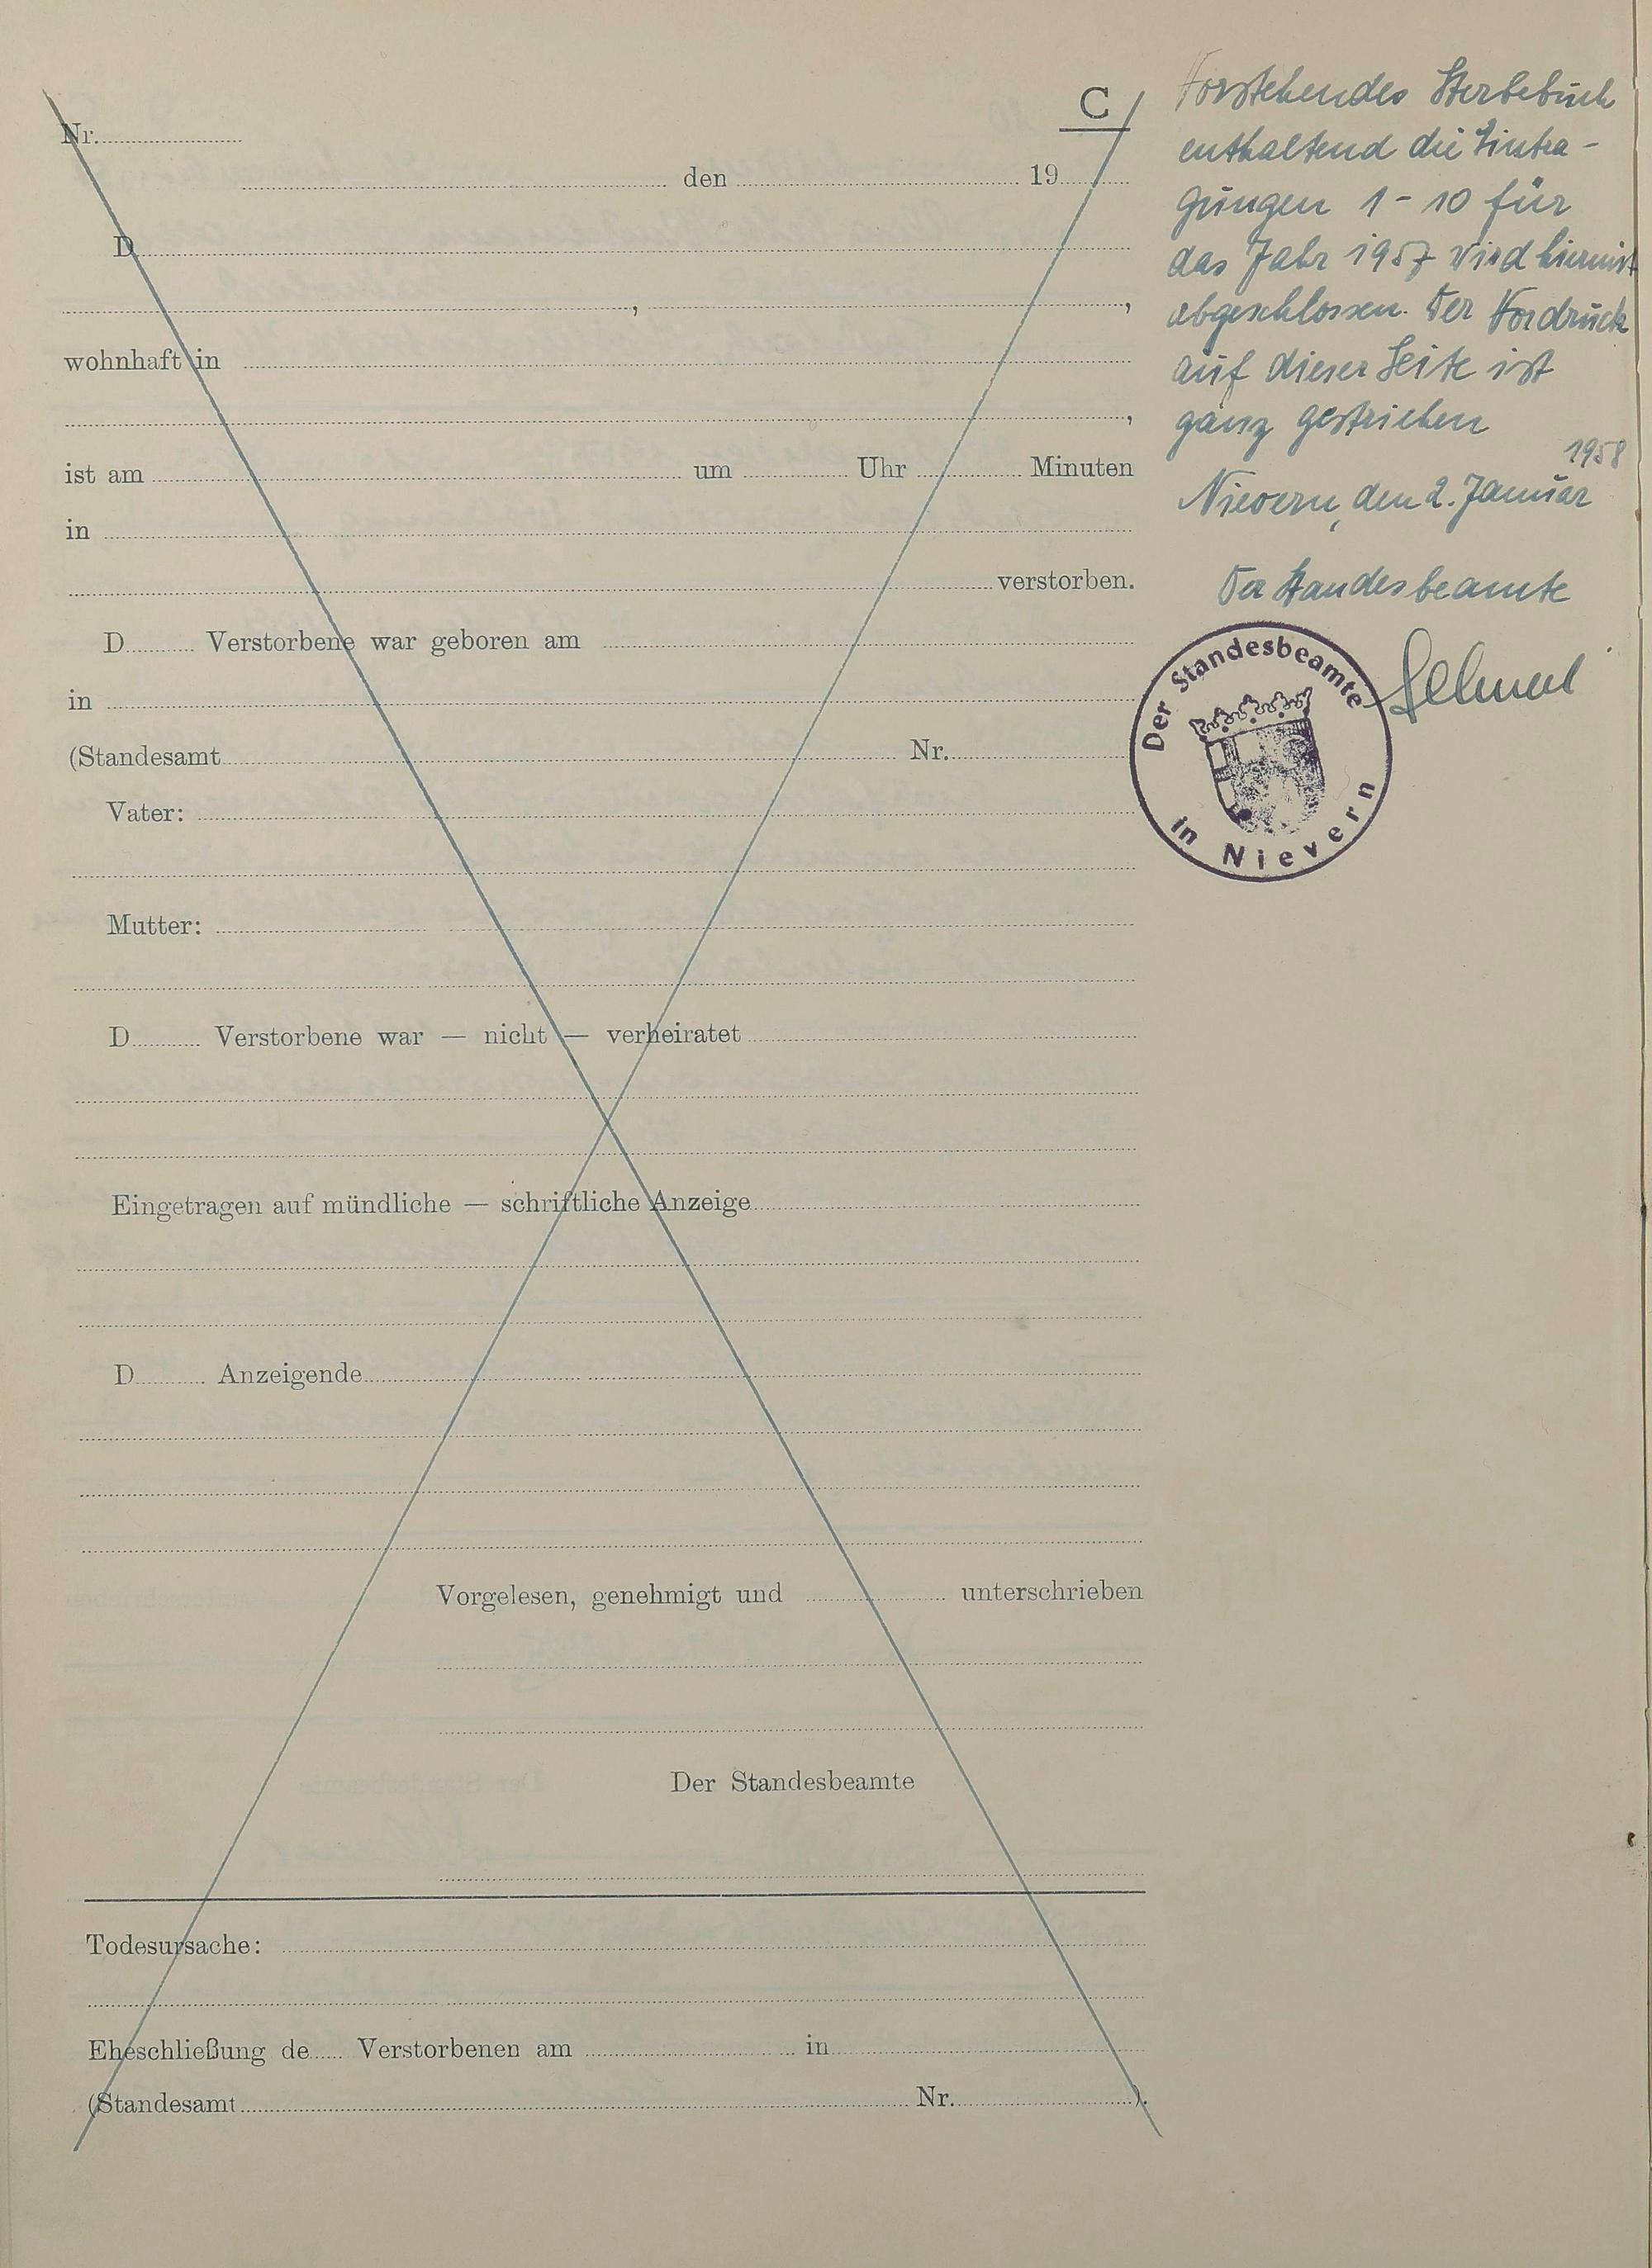 C
Nr.
den 19
D
, ,
wohnhaft in
,
ist am um Uhr Minuten
in
verstorben.
D Verstorbene war geboren am
in
(Standesamt Nr.
Vater:
Mutter:
D Verstorbene war — nicht — verheiratet
Eingetragen auf mündliche — schriftliche Anzeige
D Anzeigende
Vorgelesen, genehmigt und unterschrieben
Der Standesbeamte
Todesursache:
Eheschließung de Verstorbenen am in
(Standesamt Nr. ).
Vorstehendes Sterbebuch
enthaltend die Eintra-
gungen 1-10 für
das Jahr 1957 wird hiermit
abgeschlossen. Der Vordruck
auf dieser Seite ist
ganz gestrichen
1958
Nievern, den 2. Januar
Der Standesbeamte
Der Standesbeamte
in Nievern